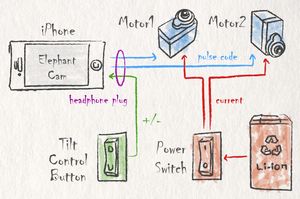 iPhone
Motor1
Motor2
Elephant
Cam
pulse code
headphone plug
+/-
current
Tilt
Control
Button
Power
Switch
Li-ion